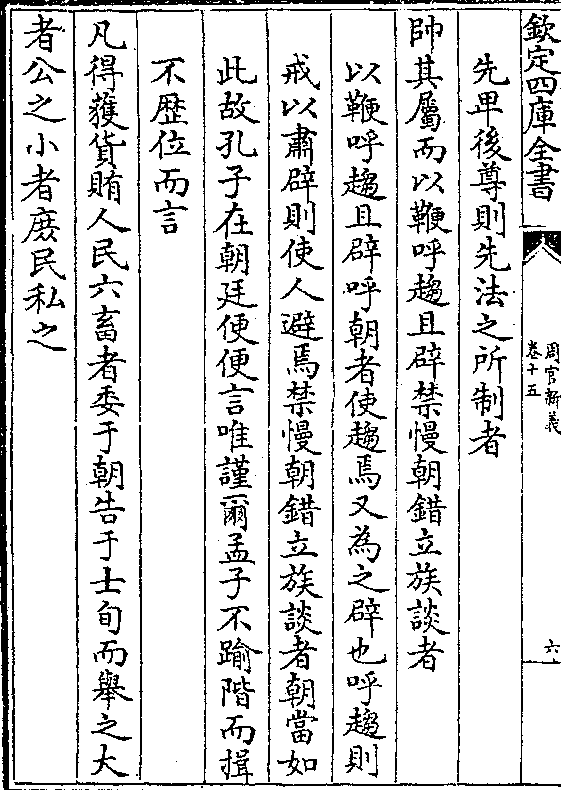 欽定四庫全書
周官新義
卷十五
六
先卑後尊則先法之所制者
帥其屬而以鞭呼趨且辟禁慢朝錯立族談者
以鞭呼趨且辟呼朝者使趨焉又為之辟也呼趨則
戒以肅辟則使人避焉禁慢朝錯立族談者朝當如
此故孔子在朝廷便便言唯謹爾孟子不踰階而揖
不歴位而言
凡得獲貨賄人民六畜者委于朝告于士旬而舉之大
者公之小者庻民私之